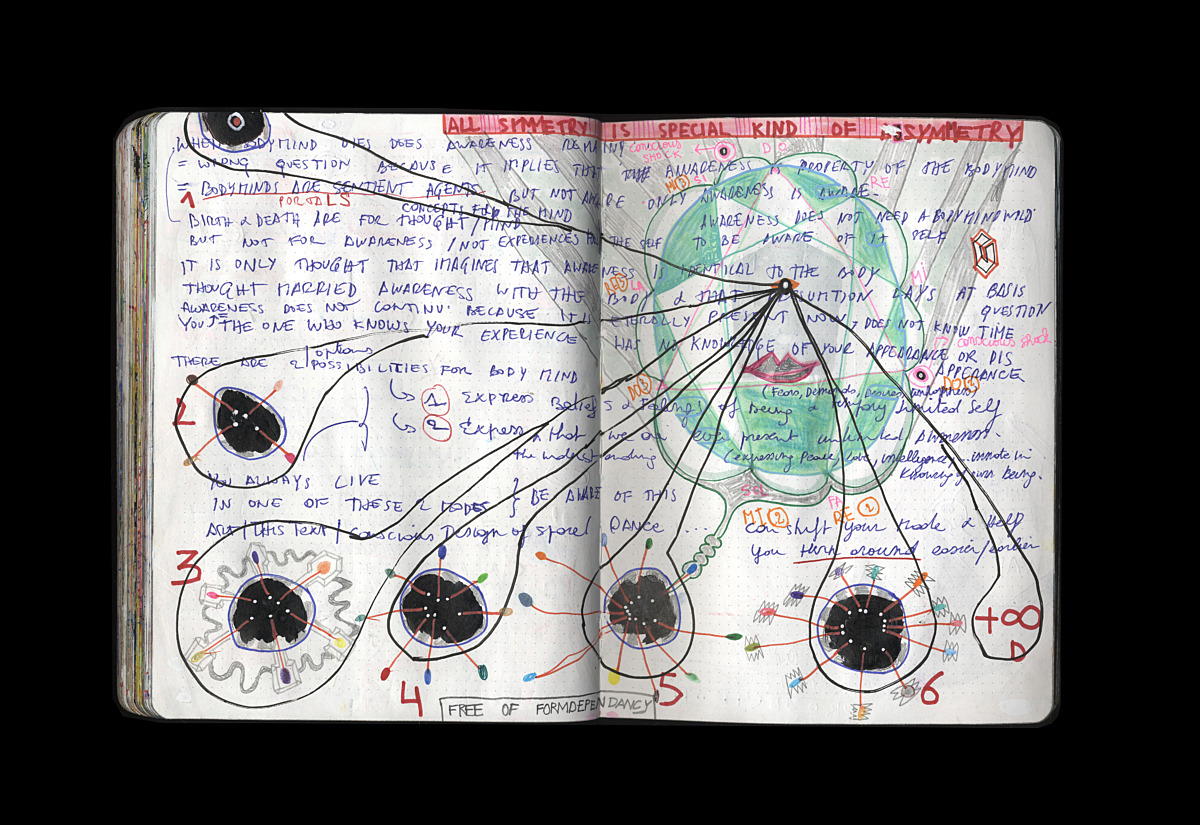 ALL SYMMETRY IS SPECIAL KIND OF ASSYMMETRY
WHEN BODYMIND DIES DOES AWARENESS REMAIN?
conscious shock
DO
= WRONG QUESTION BECAUSE IT IMPLIES THAT THE AWARENESS IS PROPERTY OF THE BODYMIND
MI(3) SI
RE
= BODYMINDS ARE SENTIENT AGENTS BUT NOT AWARE ONLY AWARENESS IS AWARE.
1
PORTALS
CONCEPTS FOR THE MIND
BIRTH & DEATH ARE FOR THOUGHT/MIND AWARENESS DOES NOT NEED A BODYMINDWILD
BUT NOT FOR AWARENESS / NOT EXPERIENCES FOR THE SELF TO BE AWARE OF IT SELF
IT IS ONLY THOUGHT THAT IMAGINES THAT AWARENESS IS IDENTICAL TO THE BODY
MI
RE(3) LA
THOUGHT MARRIED AWARENESS WITH THE BODY & THAT ASSUMTION LAYS AT BASIS
QUESTION
AWARENESS DOES NOT CONTINU. BECAUSE IT IS ETERNALLY PRESENT NOW, DOES NOT KNOW TIME
YOU = THE ONE WHO KNOWS YOUR EXPERIENCE HAS NO KNOWLEDGE OF YOUR APPEARANCE OR DIS APPERANCE
conscious shock
THERE ARE 2/options/POSSIBILITIES FOR BODY MIND
DO(3)
DO(2)
(Fears, Demands, Desires, unhappiness)
2
1 EXPRESS Beliefs & Feelings of Being a limited Self
2 Express that we are ever present unlimited Awareness.
the understanding (expressing Peace, Love, intelligence, innate in
Knowing of own being.
YOU ALWAYS LIVE
IN ONE OF THESE 2 MODES } BE AWARE OF THIS
SOL
FA
MI(2)
RE(2)
Art/this text/conscious Design of space/ DANCE ... can shift your Mode & Help
you turn around easier/earlier
3
4
5
6
+∞
D
FREE OF FORMDEPENDANCY